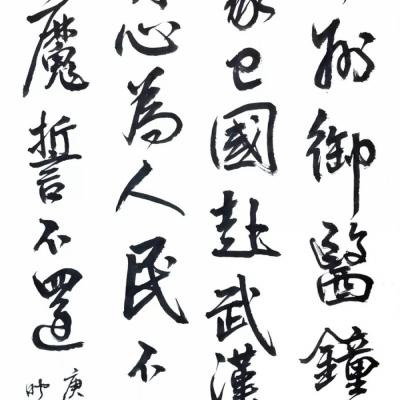 州御醫鐘
家已國赴武漢
心為人民不
魔誓不還
庚